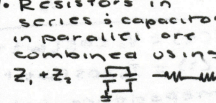 • Resistors in
series & capacito
in parallel are
combined using
Z₁ + Z₂